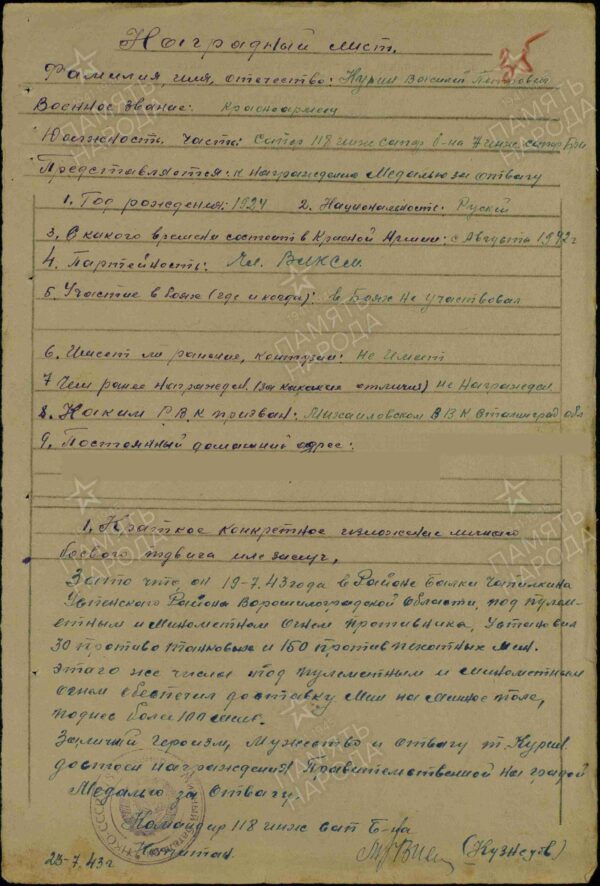 35
Наградный лист.
Фамилия, имя, отчество: Курин Василий Петрович
Военное звание: Красноармеец
Должность, часть: Сапер 118 инж сапер б-на 7 инж сапер Бри
Представляется: к награждению Медалью за отвагу
1. Год рождения: 1924 2. Национальность: Руский
3. С какого времени состоит в Красной Армии: с Августа 1942 г
4. Партейность: Чл. ВЛКСМ.
5. Участие в боях (где и когда): в Боях не участвовал
6. Имеет ли ранение, контузии: не Имеет
7 Чем ранее награжден (за какие отличия) не Награжден
8. Каким Р.В.К призван: Михайловском Р.В.К Сталинград обл
9. Постоянный домашний адрес:
1. Краткое конкретное изложение личного
боевого подвига или заслуг,
За то что он 19-7.43 года в Районе Балки
Успенского Района Ворошилоградской области, под пулем-
етным и минометным огнем противника, Установил
30 противо танковых и 150 противпехотных мин.
Этаго же числа под пулеметным и минометным
огнем обеспечил доставку мин на минное поле,
поднес боле 100 мин.
За личный героизм, мужество и отвагу т. Курин
достоен награждения Правительственной наградой
Медалью за отвагу.
Командир 118 инж сап Б-на
Капитан (Кузнецов)
23-7.43 г
ПАМЯТЬ НАРОДА
ПАМЯТЬ НАРОДА
ПАМЯТЬ НАРОДА
ПАМЯТЬ НАРОДА
ПАМЯТЬ НАРОДА
ПАМЯТЬ НАРОДА